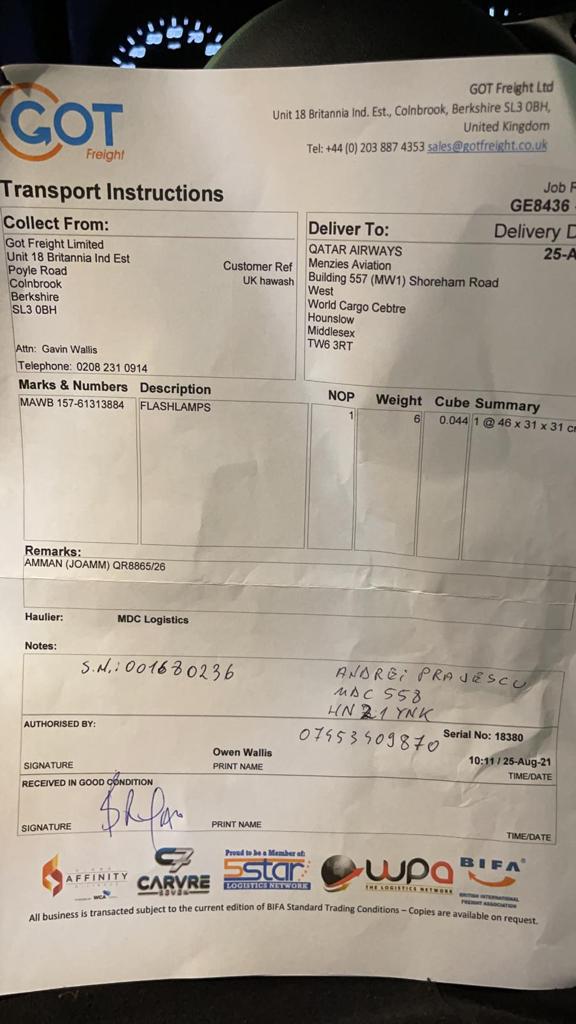 GOT
Freight
GOT Freight Ltd
Unit 18 Britannia Ind. Est., Colnbrook, Berkshire SL3 0BH,
United Kingdom
Tel: +44 (0) 203 887 4353 sales@gotfreight.co.uk
Transport Instructions
Job R
GE8436 -
Collect From:
Got Freight Limited
Unit 18 Britannia Ind Est
Poyle Road
Colnbrook
Berkshire
SL3 0BH
Customer Ref
UK hawash
Attn: Gavin Wallis
Telephone: 0208 231 0914
Deliver To:
Delivery D
25-A
QATAR AIRWAYS
Menzies Aviation
Building 557 (MW1) Shoreham Road
West
World Cargo Cebtre
Hounslow
Middlesex
TW6 3RT
Marks & Numbers Description NOP Weight Cube Summary
MAWB 157-61313884 FLASHLAMPS 1 6 0.044 1 @ 46 x 31 x 31 cm
Remarks:
AMMAN (JOAMM) QR8865/26
Haulier: MDC Logistics
Notes:
S.N.: 001680236
ANDREi PRAJESCU
MDC 558
HN21 YNK
07453409870
AUTHORISED BY:
Serial No: 18380
Owen Wallis
10:11 / 25-Aug-21
SIGNATURE PRINT NAME TIME/DATE
RECEIVED IN GOOD CONDITION
SIGNATURE PRINT NAME TIME/DATE
AFFINITY
WCA
C7
CARVRE
SEVEN
Proud to be a Member of:
5star
LOGISTICS NETWORK
wpa
THE LOGISTICS NETWORK
BIFA
BRITISH INTERNATIONAL
FREIGHT ASSOCIATION
All business is transacted subject to the current edition of BIFA Standard Trading Conditions – Copies are available on request.